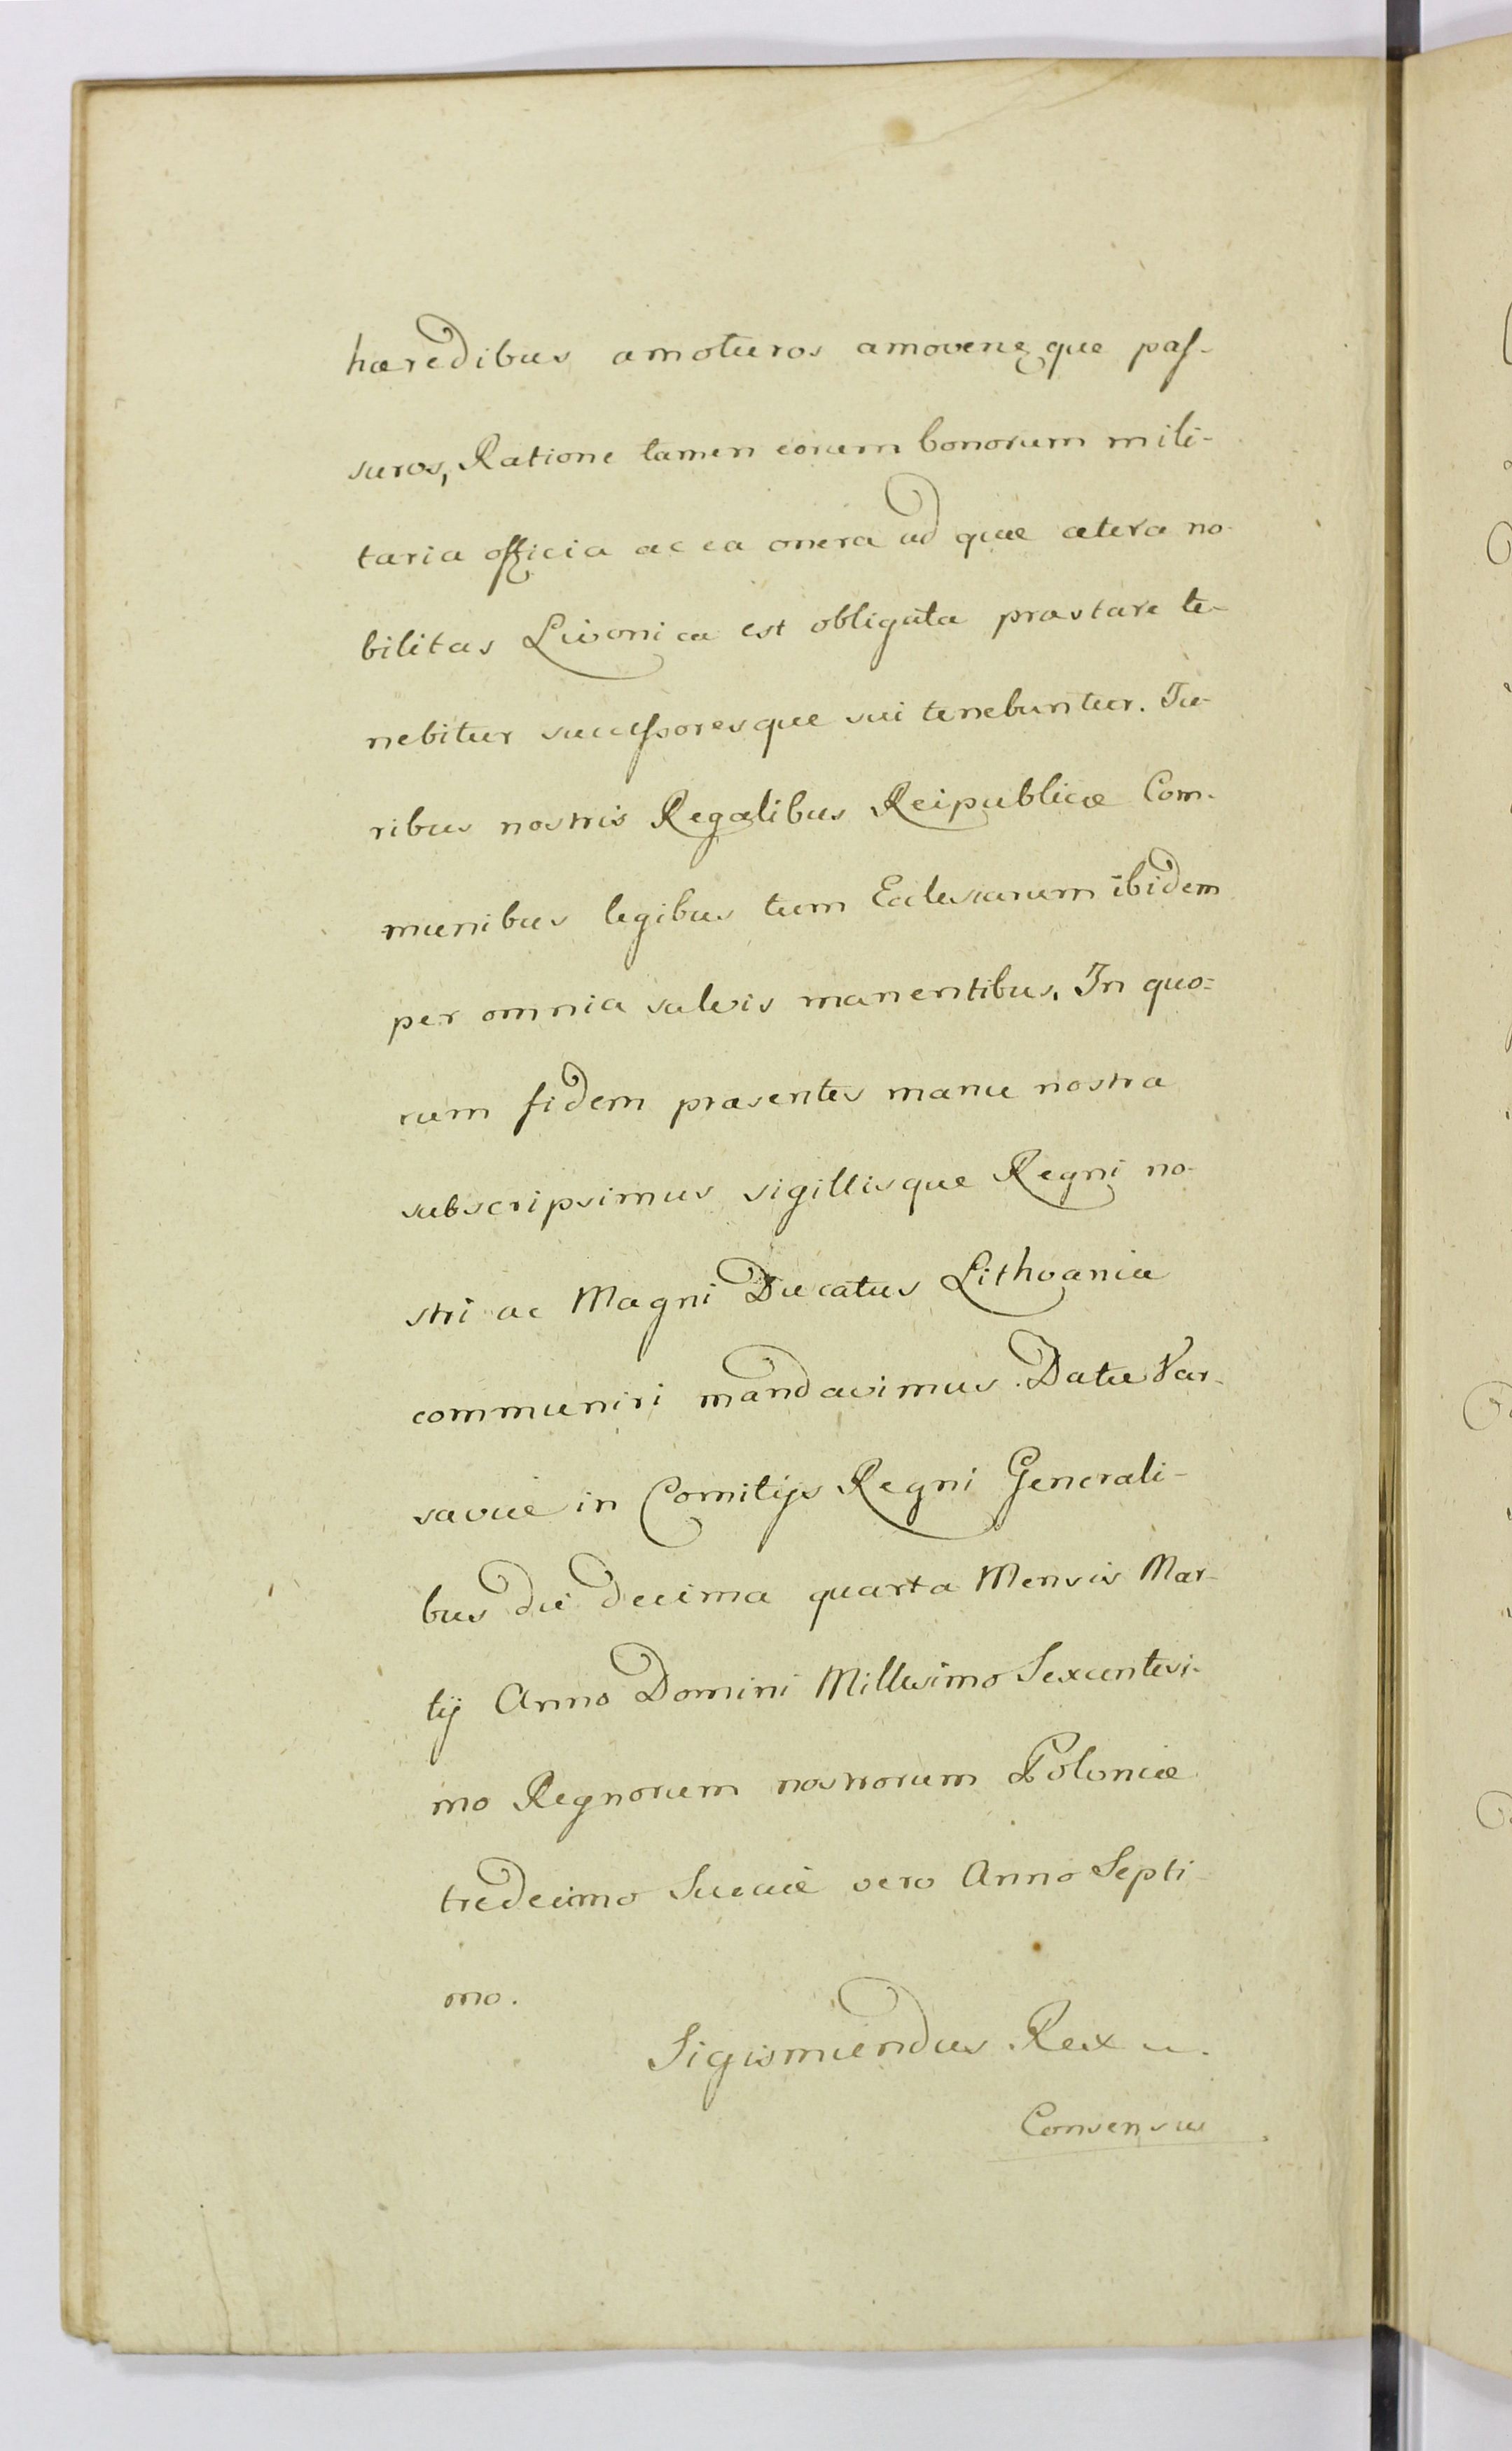 hæredibus amoturos amoveriq que pas-
suros, Ratione tamen eorum bonorum mili-
taria officia ac ea onera ad quæ cætera no-
bilitas Livonica est obligata præstare te-
nebitur successoresque sui tenebuntur. Ju-
ribus nostris Regalibus Reipublicæ Com-
munibus legibus tum Ecclesiarum ibidem
per omnia salvis manentibus. In quo=
rum fidem præsentes manu nostra
subscripsimus sigillisque Regni no-
stri ac Magni Ducatus Lithvaniæ
communiri mandavimus. Datæ Var-
saviæ in Comitijs Regni Generali-
bus die decima quarta Mensis Mar-
tij Anno Domini Millesimo Sexcentesi-
mo Regnorum nostrorum Poloniæ
tredecimo Sueciæ vero Anno Septi-
mo.
Sigismundus Rex
Consensus